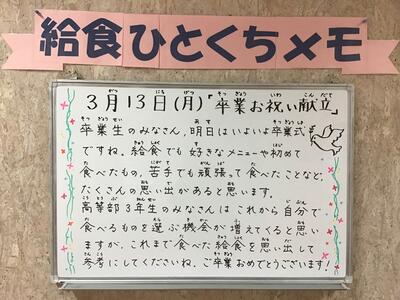 給食ひとくちメモ
3月13日(月)「卒業お祝い献立」
卒業生のみなさん、明日はいよいよ卒業式
ですね。給食でも好きなメニューや初めて
食べたもの、苦手でも頑張って食べたことなど、
たくさんの思い出があると思います。
高等部3年生のみなさんはこれから自分で
食べるものを選ぶ機会が増えてくると思い
ますが、これまで食べた給食を思い出して
参考にしてくださいね。ご卒業おめでとうございます!